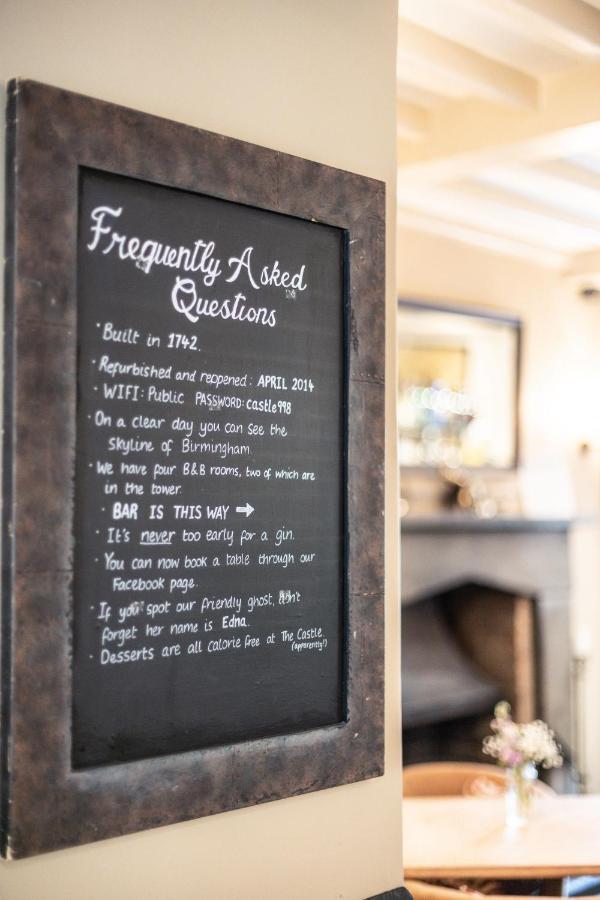 Frequently Asked
Questions
· Built in 1742.
· Refurbished and reopened: APRIL 2014
· WIFI: Public PASSWORD: castle998
· On a clear day you can see the
skyline of Birmingham.
· We have four B&B rooms, two of which are
in the tower.
· BAR IS THIS WAY →
· It's never too early for a gin.
· You can now book a table through our
Facebook page.
· If you spot our friendly ghost, don't
forget her name is Edna.
· Desserts are all calorie free at The Castle
(apparently!)